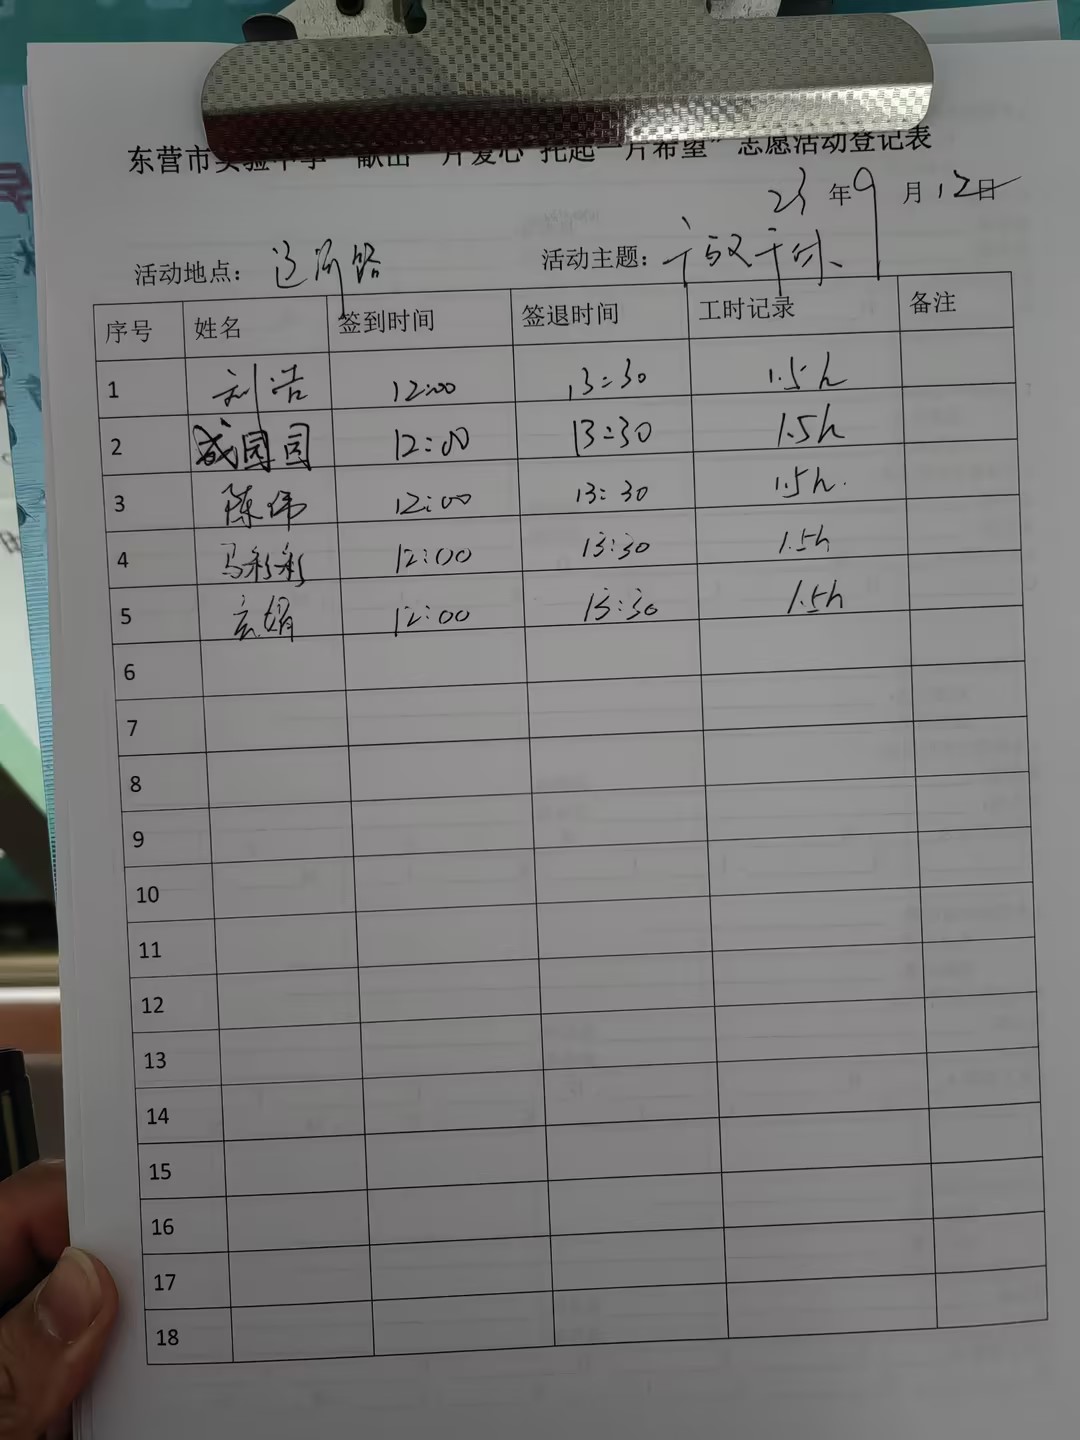 东营市实验中学"献出一片爱心 托起一片希望"志愿活动登记表
23年9月12日
活动地点: 辽河路 活动主题:
序号 姓名 签到时间 签退时间 工时记录 备注
1 刘浩 12:00 13:30 1.5h
2 成园园 12:00 13:30 1.5h
3 陈伟 12:00 13:30 1.5h.
4 马彩彩 12:00 13:30 1.5h
5 玄娟 12:00 13:30 1.5h
6
7
8
9
10
11
12
13
14
15
16
17
18